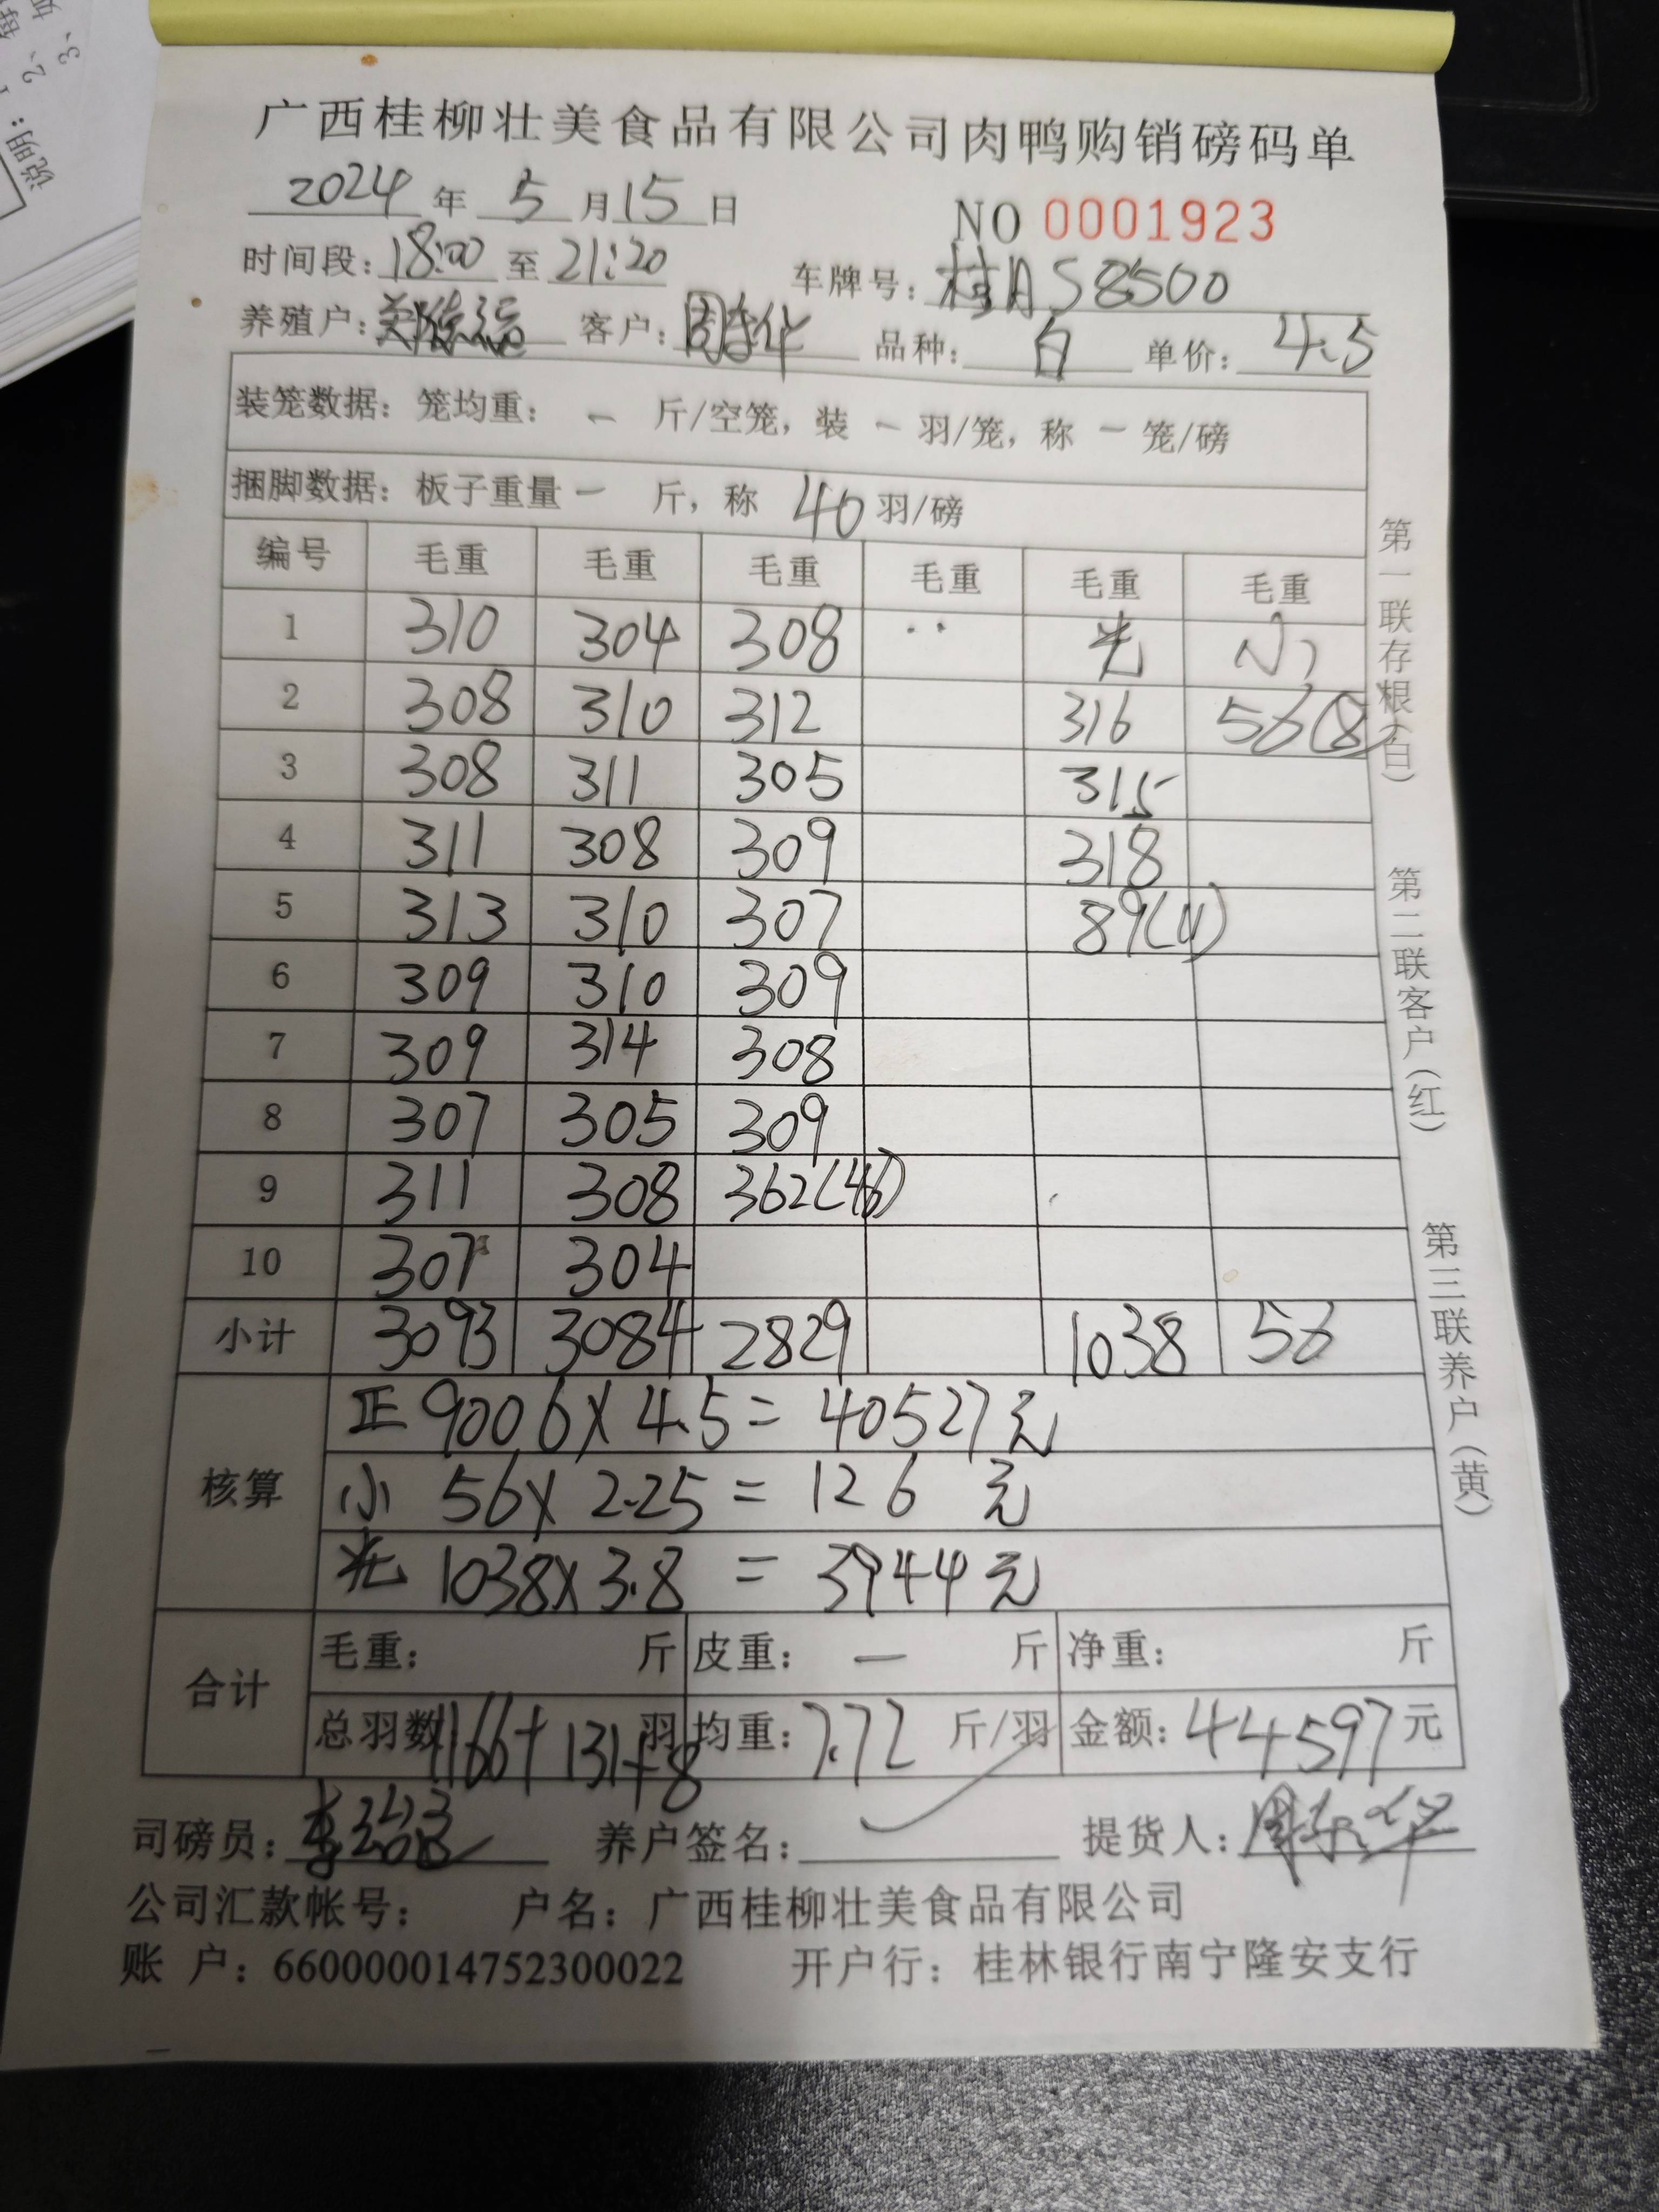 说明:1
2、每
3、如
广西桂柳壮美食品有限公司肉鸭购销磅码单
2024 年 5 月 15 日 NO 0001923
时间段: 18:00 至 21:20 车牌号: 桂AS8500
养殖户: 客户: 周华 品种: 白 单价: 4.5
装笼数据: 笼均重: 一 斤/空笼, 装 一 羽/笼, 称 一 笼/磅
捆脚数据: 板子重量 一 斤, 称 40 羽/磅
编号 毛重 毛重 毛重 毛重 毛重 毛重
1 310 304 308 光 小
2 308 310 312 316 56(8)
3 308 311 305 315
4 311 308 309 318
5 313 310 307 89(11)
6 309 310 309
7 309 314 308
8 307 305 309
9 311 308 362(46)
10 307 304
小计 3093 3084 2829 1038 56
核算
正 9006×4.5= 40527元
小 56×2.25= 126 元
光 1038×3.8 = 3944元
合计
毛重: 斤 皮重: 一 斤 净重: 斤
总羽数: 1166+131+8 羽 均重: 7.72 斤/羽 金额: 44597 元
司磅员: 养户签名: 提货人:
公司汇款帐号: 户名: 广西桂柳壮美食品有限公司
账 户: 660000014752300022 开户行: 桂林银行南宁隆安支行
第一联存根(白)
第二联客户(红)
第三联养户(黄)